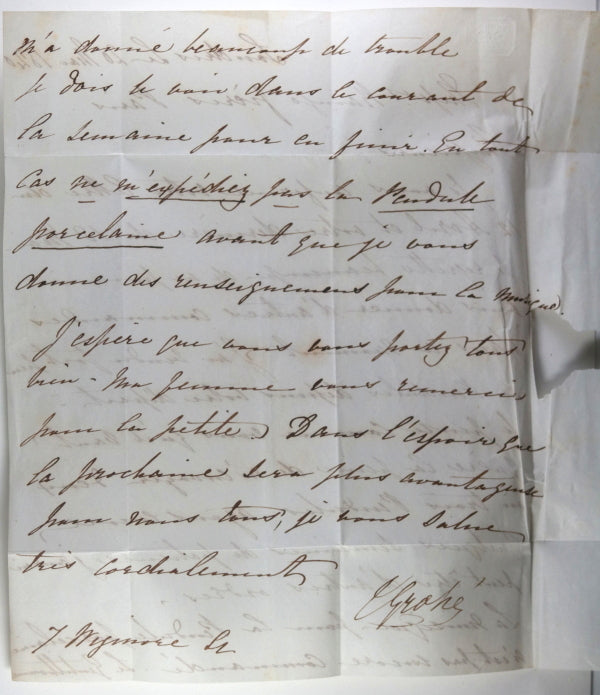 m'a donné beaucoup de trouble
je dois le voir dans le courant de
la semaine pour en finir. En tout
cas ne m'expédiez pas la Pendule
porcelaine avant que je vous
donne des renseignemens pour la musique.
J'espère que vous vous portez tous
bien - Ma femme vous remercie
pour la petite. Dans l'espoir que
la prochaine sera plus avantageuse
pour nous tous, je vous salue
très cordialement
Grohé
7 Wigmore St